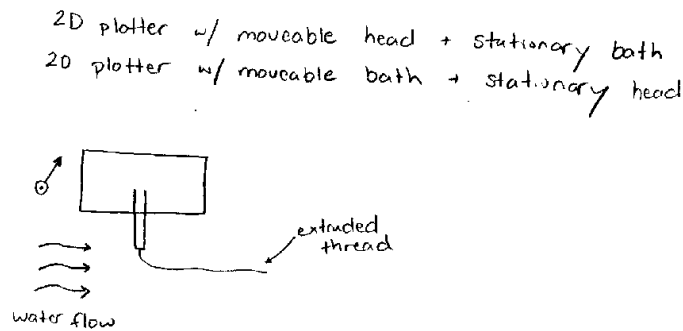 2D plotter w/ moveable head + stationary bath
2D plotter w/ moveable bath + stationary head
extruded
thread
water flow